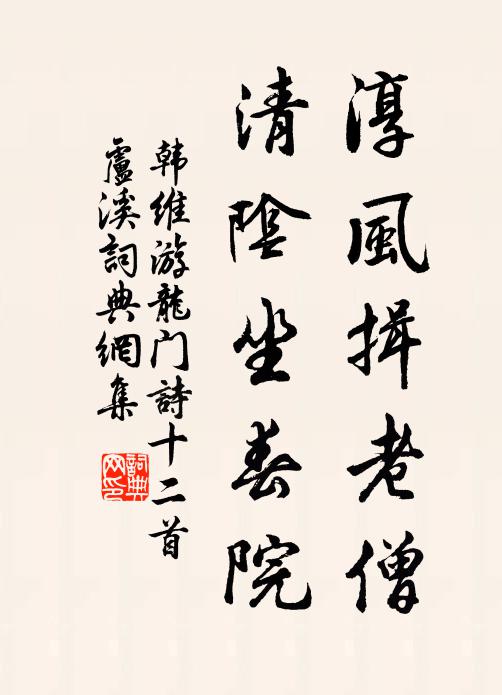 淳風揖老僧
清陰坐春院
韩維游龍门詩十二首
盧溪詞典網集
詞典網印